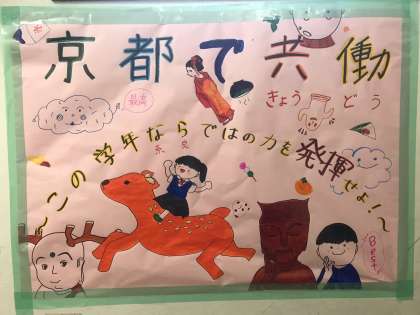 京都で共働
きょうどう
最高
~この学年ならではの力を発揮せよ!!~
奈良
Best